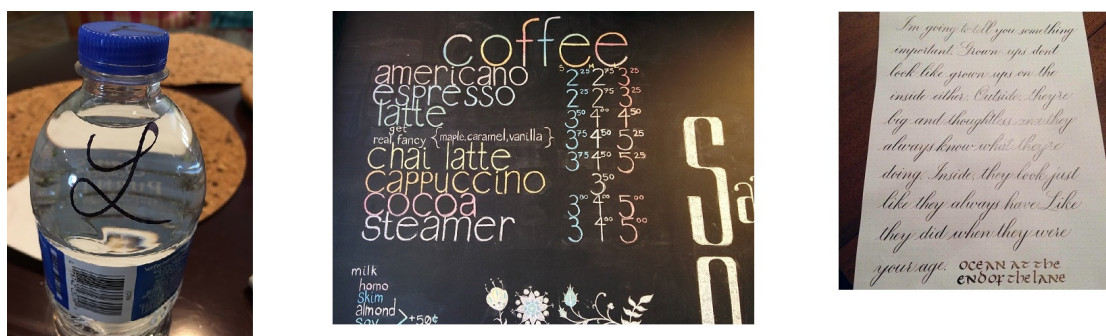 L
coffee
S M L
americano 2²⁵ 2⁷⁵ 3²⁵
espresso 2²⁵ 2⁷⁵ 3²⁵
latte 3⁵⁰ 4⁰⁰ 4⁵⁰
get
real fancy {maple, caramel, vanilla} 3⁷⁵ 4⁵⁰ 5²⁵
chai latte 3⁷⁵ 4⁵⁰ 5²⁵
cappuccino 3⁵⁰
cocoa 3⁰⁰ 4⁰⁰ 5⁰⁰
steamer 3⁰⁰ 4⁰⁰ 5⁰⁰
milk
homo
skim
almond
soy >+50¢
Sa
I'm going to tell you something
important. Grown ups don't
look like grown ups on the
inside either. Outside, they're
big and thoughtless and they
always know what they're
doing. Inside, they look just
like they always have. Like
they did when they were
your age.
OCEAN AT THE
END OF the LANE